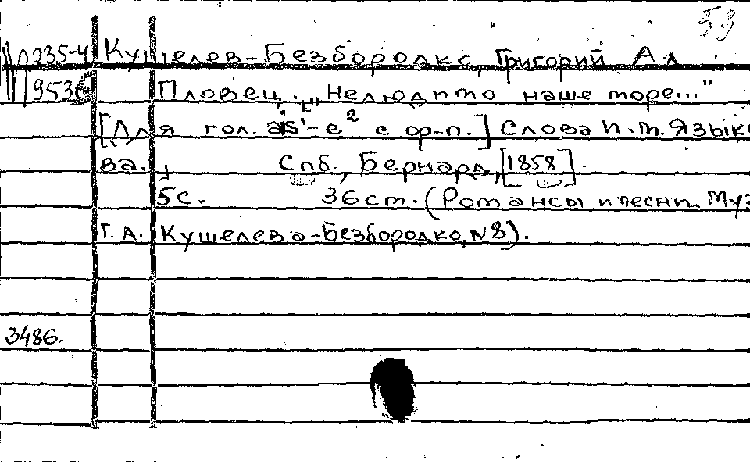 59
М 235-4 Кушелев-Безбородко, Григорий Ал
953 Пловец. "Нелюдимо наше море..."
[Для гол. as'-e² с ф-п.] Слова Н.М. Языко
ва. Спб., Бернард, [1858].
5с. 36 ст. (Романсы и песни. Муз
Г.А. Кушелева-Безбородко, №8).
3486.